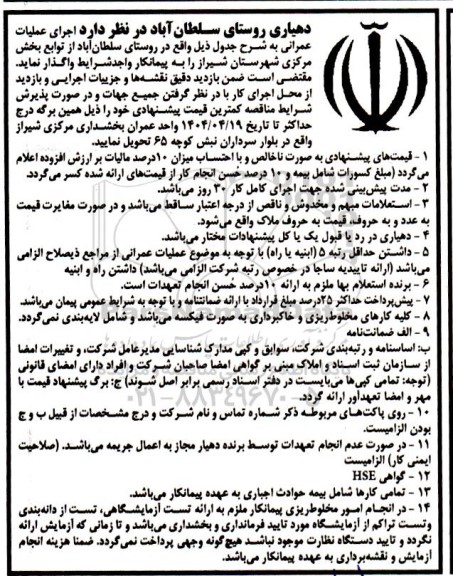 دهیاری روستای سـلطان‌آباد در نظر دارد اجرای عملیات
عمرانی به شرح جدول ذیل واقع در روستای سلطان‌آباد از توابع بخش
مرکزی شهرستان شیراز را به پیمانکار واجدشرایط واگذار نماید.
مقتضی است ضمن بازدید دقیق نقشه‌ها و جزییات اجرایی و بازدید
از محـل اجرای کار با در نظر گرفتن جمیع جهات و در صورت پذیرش
شرایط مناقصه کمترین قیمت پیشنهادی خود را ذیل همین برگه درج
حداکثر تا تاریخ ۱۴۰۴/۰۴/۱۹ واحد عمران بخشداری مرکزی شیراز
واقع در بلوار سرداران نبش کوچه ۶۵ تحویل نمایید.
۱ - قیمت‌های پیشنهادی به صورت ناخالص و با احتساب میزان ۱۰درصد مالیات بر ارزش افزوده اعلام
می‌گردد (مبلغ کسورات شامل بیمه و ۱۰ درصد حسن انجام کار از قیمت‌های ارائه شده کسر می‌گردد.
۲ - مدت پیش‌بینی شده جهت اجرای کامل کار ۳۰ روز می‌باشد.
۳ - استعلامات مبهم و مخدوش و ناقص از درجه اعتبار ساقط می‌باشد و در صورت مغایرت قیمت
به عدد و به حروف، قیمت به حروف ملاک واقع می‌شود.
۴ - دهیاری در رد یا قبول یک یا کل پیشنهادات مختار می‌باشد.
۵ - داشتن حداقل رتبه ۵ (ابنیه یا راه) با توجه به موضوع عملیات عمرانی از مراجع ذیصلاح الزامی
می‌باشد (ارائه تاییدیه ساجا در خصوص رتبه شرکت الزامی می‌باشد) داشتن راه و ابنیه
۶ - برنده استعلام بها ملزم به ارائه ۱۰درصد حُسن انجام تعهدات است.
۷ - پیش‌پرداخت حداکثر ۲۵درصد مبلغ قرارداد با ارائه ضمانتنامه و با توجه به شرایط عمومی پیمان می‌باشد.
۸ - کلیه کارهای مخلوط‌ریزی و خاکبرداری به صورت فیکسه می‌باشد و شامل لایه‌بندی نمی‌گردد.
۹ - الف ضمانت‌نامه
ب: اساسنامه و رتبه‌بندی شرکت، سوابق و کپی مدارک شناسایی مدیرعامل شرکت، و تغییرات امضا
از سازمان ثبت اسناد و املاک مبنی بر گواهی امضا صاحبان شرکت و افراد دارای امضای قانونی
(توجه: تمامی کپی‌ها می‌بایست در دفتر اسناد رسمی برابر اصل شوند) ج: برگ پیشنهاد قیمت با
مهر و امضا تعهدآور ارائه گردد.
۱۰ - روی پاکت‌های مربوطه ذکر شماره تماس و نام شرکت و درج مشخصات از قبیل ب و ج
بودن الزامیست.
۱۱ - در صورت عدم انجام تعهدات توسط برنده دهیار مجاز به اعمال جریمه می‌باشد. (صلاحیت
ایمنی کار) الزامیست
۱۲ - گواهی HSE
۱۳ - تمامی کارها شامل بیمه حوادث اجباری به عهده پیمانکار می‌باشد.
۱۴ - در انجام امور مخلوط‌ریزی پیمانکار ملزم به ارائه تست آزمایشگاهی، تست از دانه‌بندی
وتست تراکم از آزمایشگاه مورد تایید فرمانداری و بخشداری می‌باشد و تا زمانی که آزمایش ارائه
نگردد و تایید دستگاه نظارت موجود نباشد هیچ‌گونه وجهی پرداخت نمی‌گردد. ضمنا هزینه انجام
آزمایش و نقشه‌برداری به عهده پیمانکار می‌باشد.